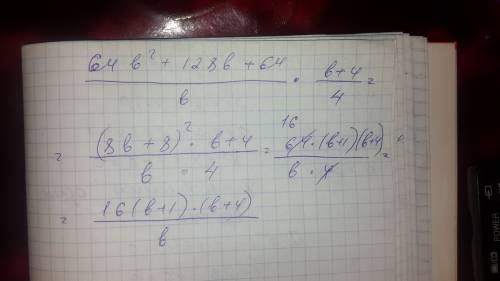 (64 b² + 128b + 64)/b · (b+4)/4 =
= ((8b + 8)² · b+4)/(b · 4) = (16 64 · (b+1)(b+4))/(b · 4) =
= (16(b+1) · (b+4))/b
POWER